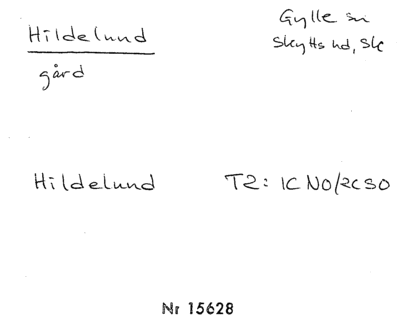 Hildelund
gård
Gylle sn
Skytts hd, Sk
Hildelund
T2: 1C NO/2C SO
Nr 15628